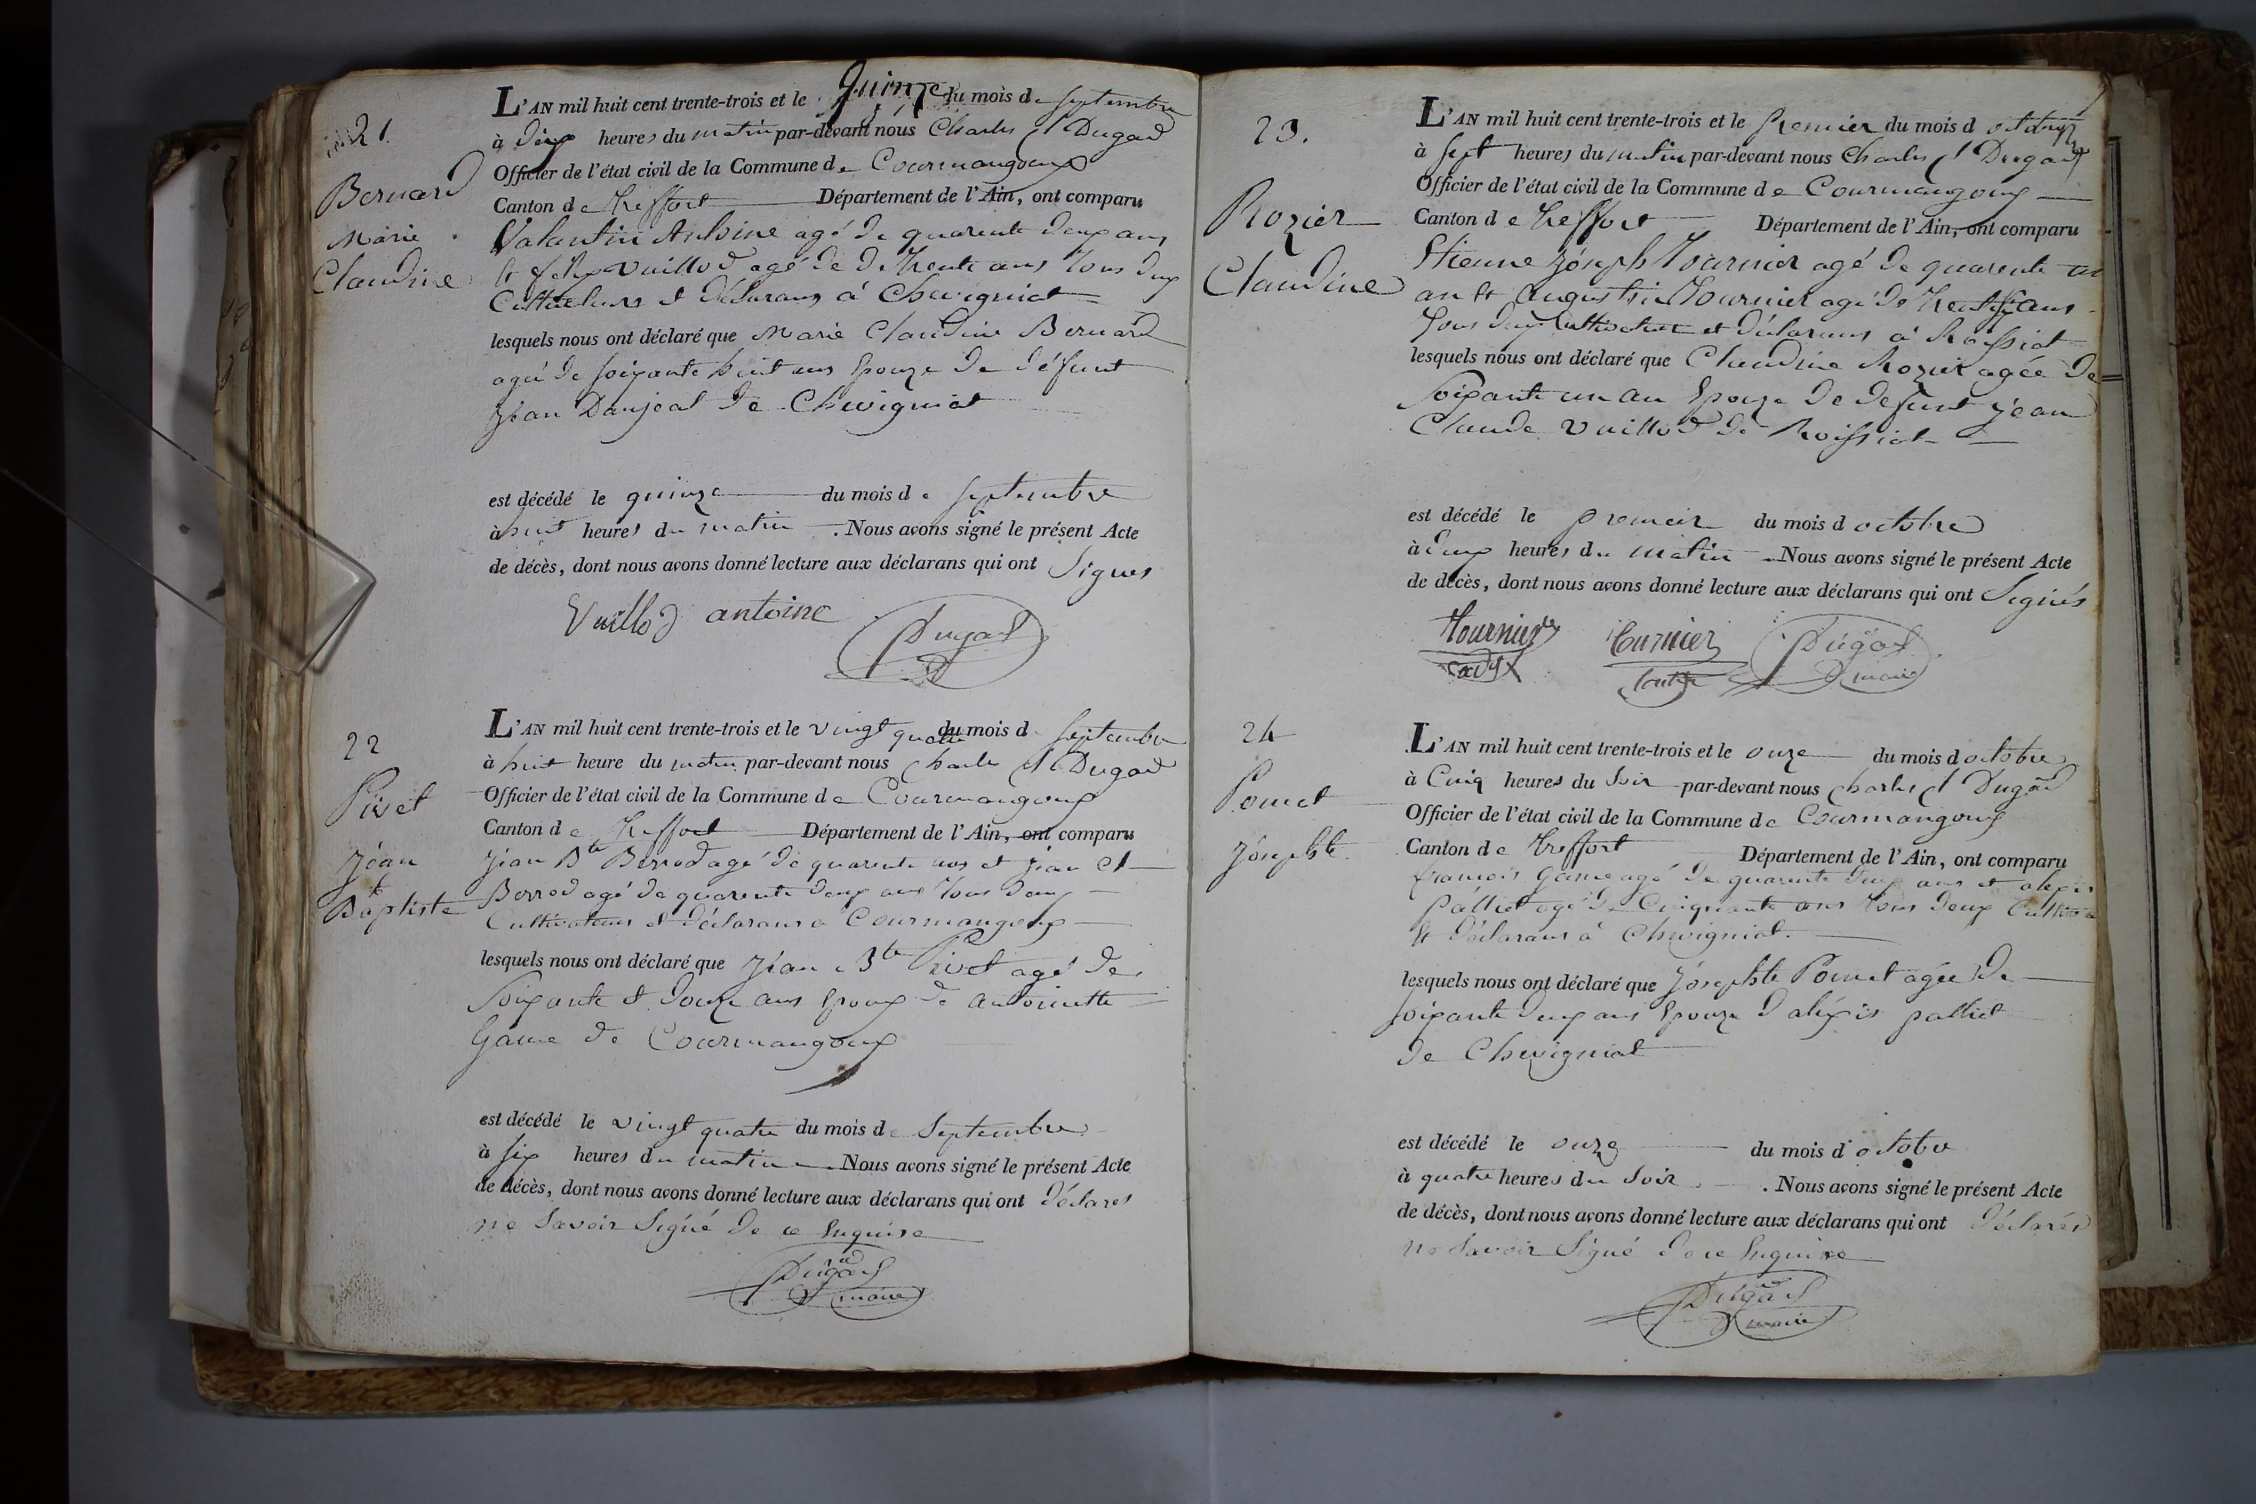 21.
Bernard
Marie
Claudine
L'AN mil huit cent trente-trois et le quinze du mois de septembre
à dix heures du matin par-devant nous Charles Dugad
Officier de l'état civil de la Commune de Courmangoux
Canton de Treffort Département de l'Ain, ont comparu
Valantin Antoine agé de quarente deux ans
et felix Vuillod agé de de trente ans tous deux
Cultivateurs et déclarans à Chevigniat
lesquels nous ont déclaré que Marie Claudine Bernard
agée de soixante huit ans Epouze de défunt
Jean Danjeal de Chevigniat
est décédé le quinze du mois de septembre
à huit heures du matin . Nous avons signé le présent Acte
de décès, dont nous avons donné lecture aux déclarans qui ont Signés
Vuillod antoine Dugad
22
Pivet
Jéan
Baptiste
L'AN mil huit cent trente-trois et le vingt quatre du mois d septembre
à huit heure du matin par-devant nous Charles Dugad
Officier de l'état civil de la Commune de Courmangoux
Canton de Treffort Département de l'Ain, ont comparu
Jean Bte Berrod agé de quarente ans et Jean Cl
Berrod agé de quarente deux ans tous deux
Cultivateurs et déclarans a Courmangoux
lesquels nous ont déclaré que Jéan Bte Pivet agé de
Soixante et douze ans Epoux de antoinette
Game de Courmangoux
est décédé le vingt quatre du mois de Septembre
à six heures du matin . Nous avons signé le présent Acte
de décès, dont nous avons donné lecture aux déclarans qui ont déclarés
ne Savoir Signé de ce Enquise
Dugad
maire
23.
Rozier
Claudine
L'AN mil huit cent trente-trois et le Premier du mois d octobre
à sept heures du matin par-devant nous Charles Dugad
Officier de l'état civil de la Commune de Courmangoux
Canton de Treffort Département de l'Ain, ont comparu
Etienne Joseph Tournier agé de quarente un
an et Augustin Tournier agé de trente ans
Tous deux Cultivateur et déclarans à Roissiat
lesquels nous ont déclaré que Claudine Rozier agée de
Soixante un an Epouze de defunt jean
Claude Vuillod de Roissiat
est décédé le premeir du mois d octobre
à deux heures du matin . Nous avons signé le présent Acte
de décès, dont nous avons donné lecture aux déclarans qui ont Signés
Tournier Tournier Dugad
maire
24
Pomet
Joséphte
L'AN mil huit cent trente-trois et le onze du mois d octobre
à Cinq heures du Soir par-devant nous Charles Dugad
Officier de l'état civil de la Commune de Courmangoux
Canton de Treffort Département de l'Ain, ont comparu
francois Game agé de quarente deux ans et alexis
Palliet agé de Cinquante ans tous deux Cultiva
et déclarans à Chevigniat.
lesquels nous ont déclaré que Joséphte Pomet agée de
soixante deux ans Epouze d aléxis palliet
de Chevigniat
est décédé le onze du mois d octobre
à quatre heures du Soir . Nous avons signé le présent Acte
de décès, dont nous avons donné lecture aux déclarans qui ont déclarés
ne Savoir Signé de ce Enquise
Dugad
maire